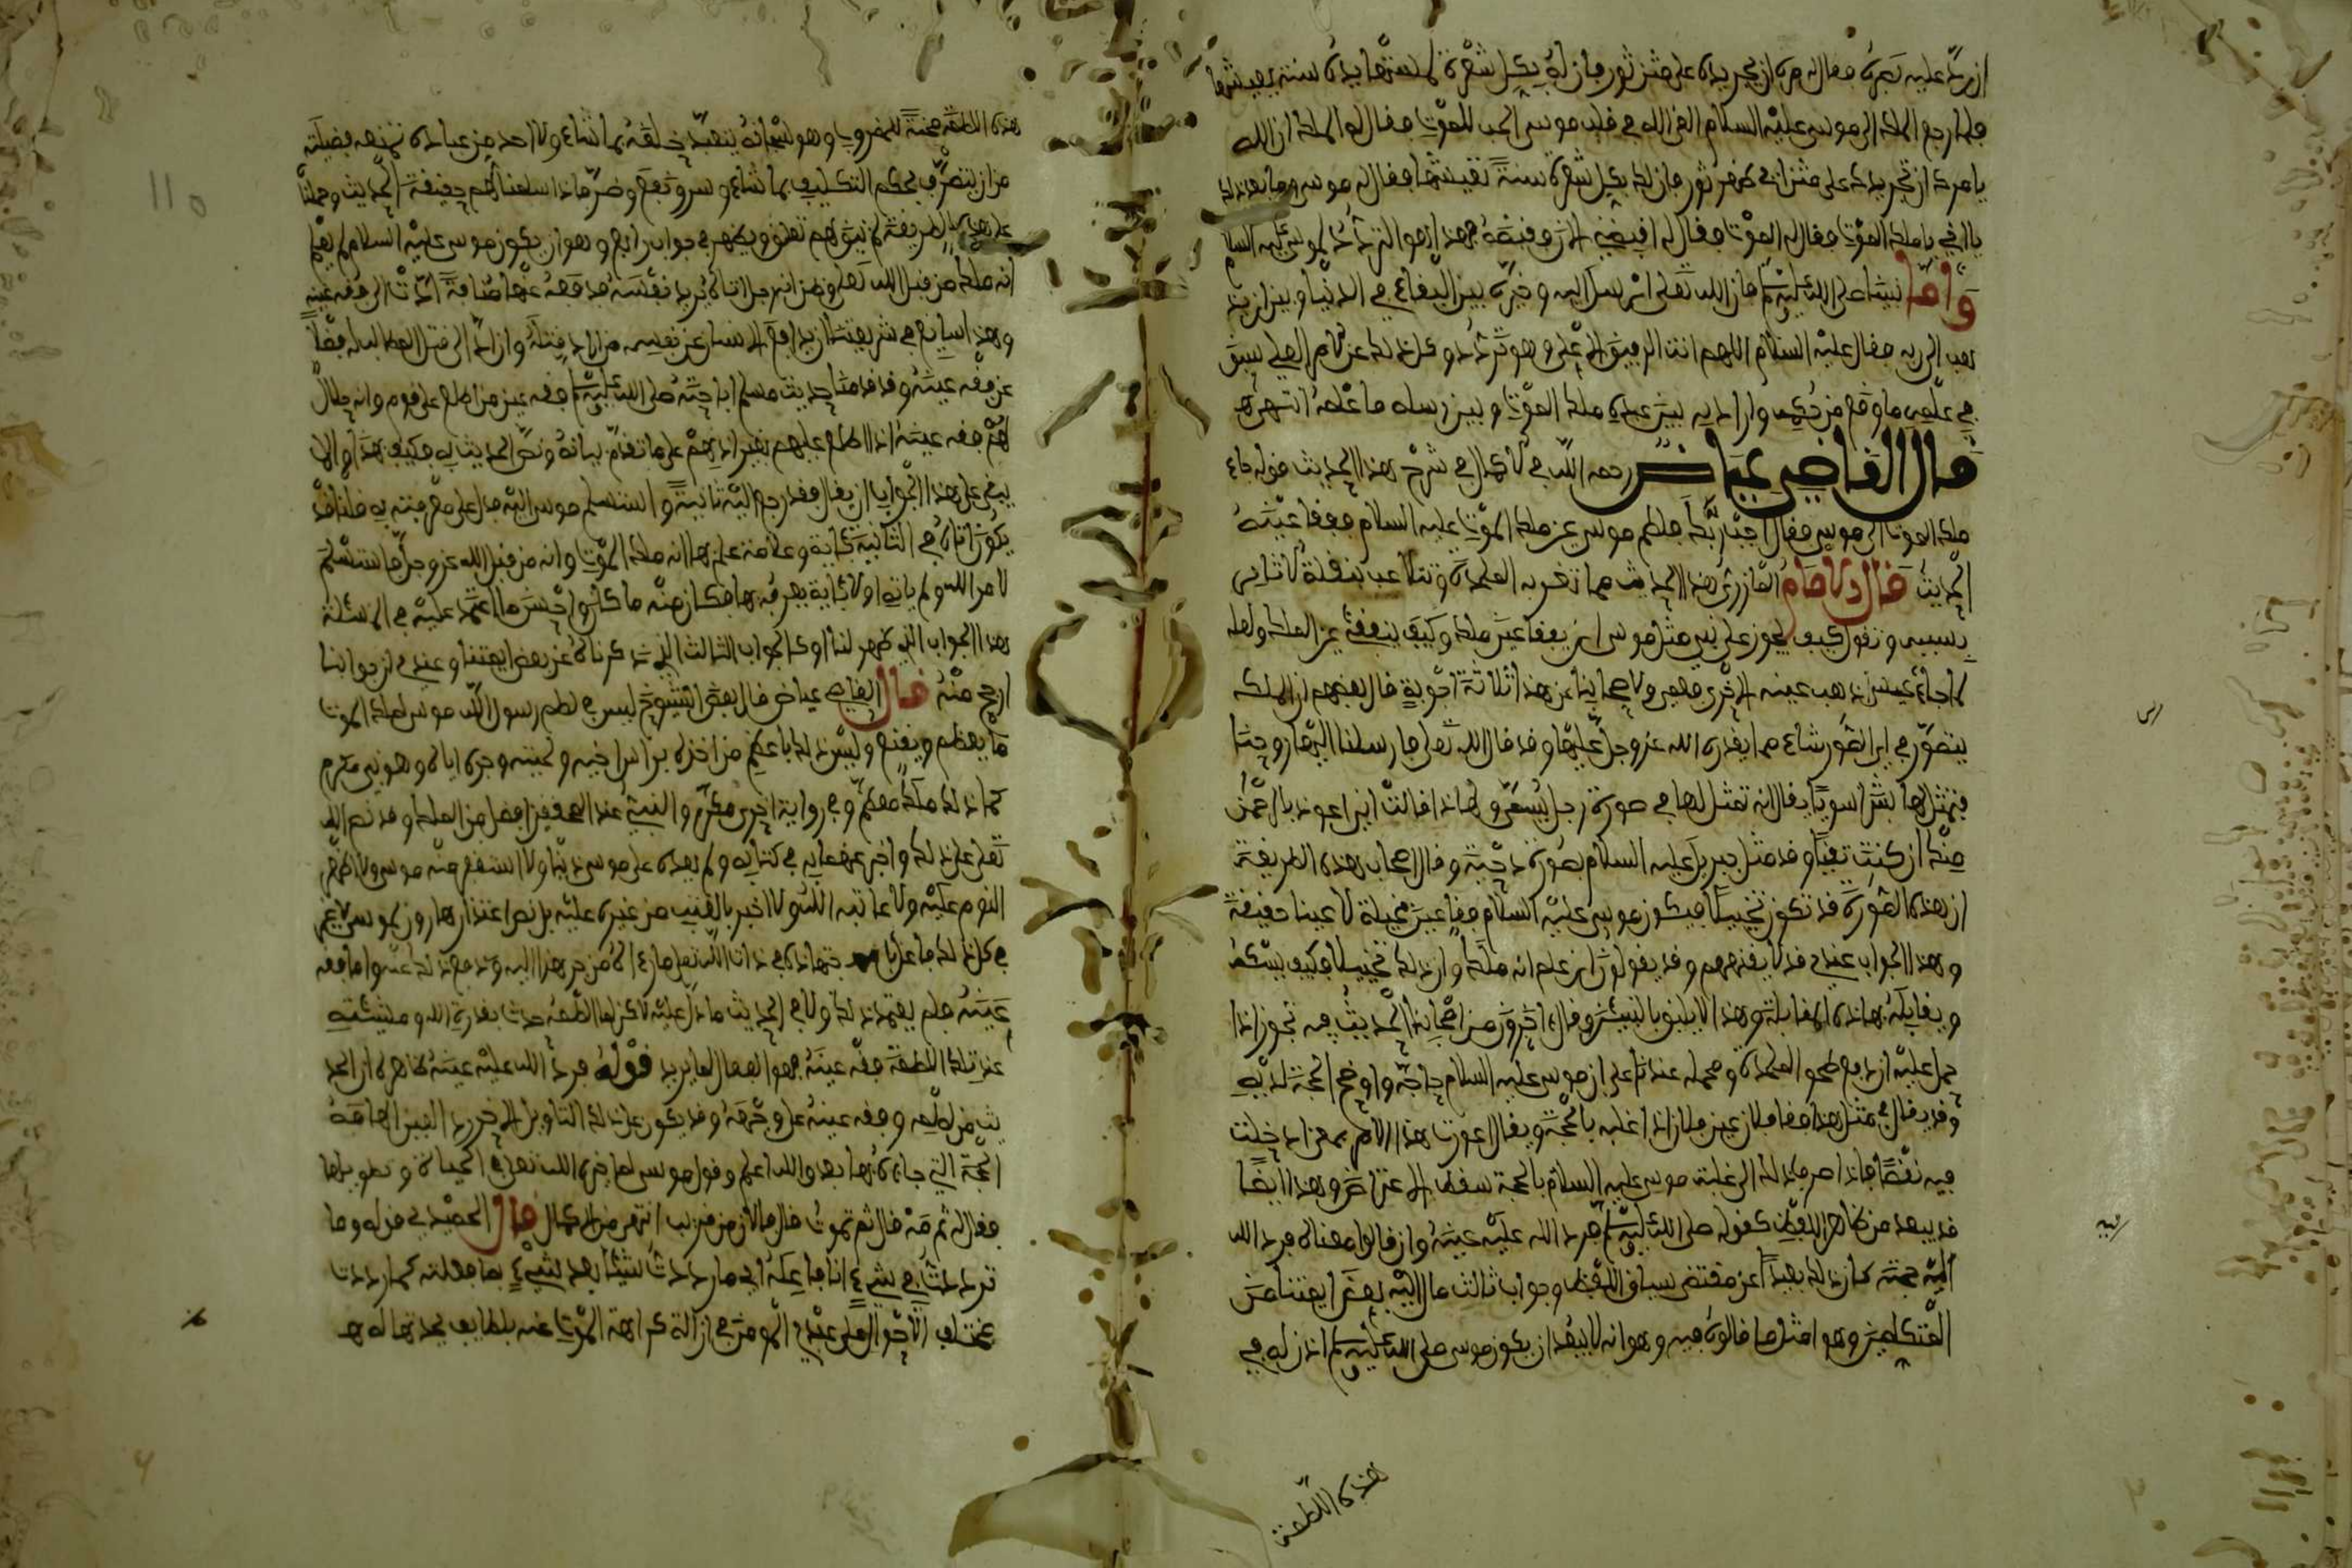 ان يرد عليه بصره فقال له مره ان يجر يده على متن ثور فان له بكل شعرة لمستها يده سنة يعيشها
فلما رجع الملك الى موسى عليه السلام القى الله في قلب موسى الحب للموت فقال له الملك ان الله
يامرك ان تجر يدك على متن اي ظهر ثور فان لك بكل شعرة سنة تعيشها فقال له موسى وما بعد ذلك
يا اخي يا ملك الموت فقال له الموت فقال له اقبض الان وقبضه فهذا هو الترداد لموسى عليه السلام
واما نبينا صلى الله عليه وسلم فان الله تعلى ارسل اليه وخيره بين البقاء في الدنيا وبين ان يذ
هب الى ربه فقال عليه السلام اللهم انت الرفيق الاعلى وهو تردد وكل ذلك عن الامر الذي سبق
في علمه ما وقع من حكمه واراد به بين عبده ملك الموت وبين رسله ما علمه انتهى
قال القاضي عياض رحمه الله في الاكمال في شرح هذا الحديث قوله جاء
ملك الموت الى موسى فقال اجب ربك فلطم موسى عين ملك الموت عليه السلام ففقا عينه
الحديث قال الامام المازري هذا الحديث مما تغرب به الملحدة وتتلاعب بنقلة الاثار
بسببه وتقول كيف يجوز على نبي مثل موسى ان يفقا عين ملك وكيف ينفقئ عين الملك ولعله
لما جاء عيسى ذهب عينه الاخرى فعمي ولاصحابنا عن هذا ثلاثة اجوبة قال بعضهم ان الملك
يتصور في اي الصور شاء مما يقدره الله عز وجل عليها وقد قال الله تعلى فارسلنا اليها روحنا
فتمثل لها بشرا سويا يقال انه تمثل لها في صورة رجل يسمى ولهذا قالت اني اعوذ بالرحمن
منك ان كنت تقيا وقد مثل جبريل عليه السلام بصورة دحية وقال اصحاب هذه الطريقة
ان هذه الصورة قد تكون تخييلا فيكون موسى عليه السلام فقا عين مخيلة لا عينا حقيقة
وهذا الجواب عندي قد لا يقنعهم وقد يقولون ان علم انه ملك وان ذلك تخييل فكيف يسكه
ويقابله بهاذه المقابلة وهذا لا يليق بالنبيين وقال اخرون من اصحابنا الحديث فيه تجوز اذا
حمل عليه اندفع طعن الملحدة ومحمله عندنا على ان موسى عليه السلام حاجه واوضح الحجة لديه
وقد يقال في مثل هذا فقا فلان عين فلان اذا غلبه بالحجة ويقال عورت هذا الامر بمعنى ادخلت
فيه نقصا فاذا صرف ذلك الى غلبة موسى عليه السلام بالحجة سقط الاعتراض وهذا ايضا
قد يبعد من ظاهر اللفظ كقوله صلى الله عليه وسلم فرد الله عليه عينه وان قالوا معناه فرد الله
اليه حجته كان ذلك بعيدا عن مقتضى سياق اللفظ وجواب ثالث مال اليه بعض ايمتنا من
المتكلمين وهو امثل ما قالوه فيه وهو انه لا يبعد ان يكون موسى صلى الله عليه وسلم اذن له في
هذه اللطمة
هذه اللطمة محنة للمضروب وهو سبحانه يتعبد خلقه بما شاء ولا احد من عباده تمنعه فضيلته
من ان يتصرف بحكم التكليف بما شاء وسر ونفع وضر فاذا سلمنا لهم حقيقة الحديث وحملنا
على هذه الطريقة لم يبق لهم تعلق ويظهر في جواب رابع وهو ان يكون موسى عليه السلام لم يعلم
انه ملك من قبل الله تعلى وظن انه رجل اتاه يريد نفسه فدافعه عنها مدافعة ادت الى فقء عينه
وهذا سايغ في شريعتنا ان يدافع الانسان عن نفسه من اراد قتله وان ادى الى قتل الطالب له فضلا
عن فقء عينه وقد قدمنا حديث مسلم اباحته صلى الله عليه وسلم فقء عين من اطلع على قوم وانه حلال
لهم فقء عينه اذا اطلع عليهم بغير اذنهم على ما تقدم بيانه ونص الحديث به فكيف بهذا ولا
يبقى على هذا الجواب ان يقال فقد رجع اليه ثانية واستسلم موسى اليه فدل على معرفته به قلنا قد
يكون اتاه في الثانية باية وعلامة علم بها انه ملك الموت وانه من قبل الله عز وجل فاستسلم
لامر الله ولم ياته اولا باية يعرفه بها فكان منه ما كان واحسن ما اعتمد عليه في المسئلة
هذا الجواب الذي ظهر لنا او الجواب الثالث الذي ذكرناه عن بعض ايمتنا وعندي ان جوابنا
ارجح منه قال القاضي عياض قال بعض الشيوخ ليس في لطم رسول الله موسى لملك الموت
ما يعظم ويفنع وليس ذلك باعظم من اخذه براس اخيه ولحيته وجره اياه وهو نبي مكرم
كما ذلك ملك معظم وفي رواية اخرى مكرم والنبي عند المحققين افضل من الملك وقد نص الله
تعلى على ذلك واخبر بفعله في كتابه ولم يعده على موسى ذنبا ولا استغفر منه موسى ولا اظهر
اللوم عليه ولا عاتبه الله ولا اخبر بالعتب من غيره عليه بل نص اعتذار هارون لموسى لا غير
في كل ذلك فاعل بما جتهاده في ذات الله تعلى فان كان من جر هذا اليه ودفع ذلك عنه واما فقء
عينه فلم يعتمد ذلك ولا في الحديث ما دل عليه لاكن لما الطمه حدث بقدرة الله ومشيئته
عند تلك اللطمة فقء عينه فهو الفعال لما يريد قوله فرد الله عليه عينه ظاهره ان الحد
يث من لطمه وفقء عينه على وجهه وقد يكون على ذلك التاويل الاخر رد العين الهامة
الحجة التي جاءه بها بعد والله اعلم وقول موسى لما خيره الله تعلى في الحياة وتطويلها
فقال له ثم مه قال ثم تموت قال فالان من قريب انتهى من الاكمال قال الحميدي في قوله وما
ترددت في شيء انا فاعله اي ما رددت شيئا بعد شيء بما فعلته كما رددت
مختلف الاحوال على عبدي المومن في ازالة كراهة الموت عنه بلطايف يحدثها له